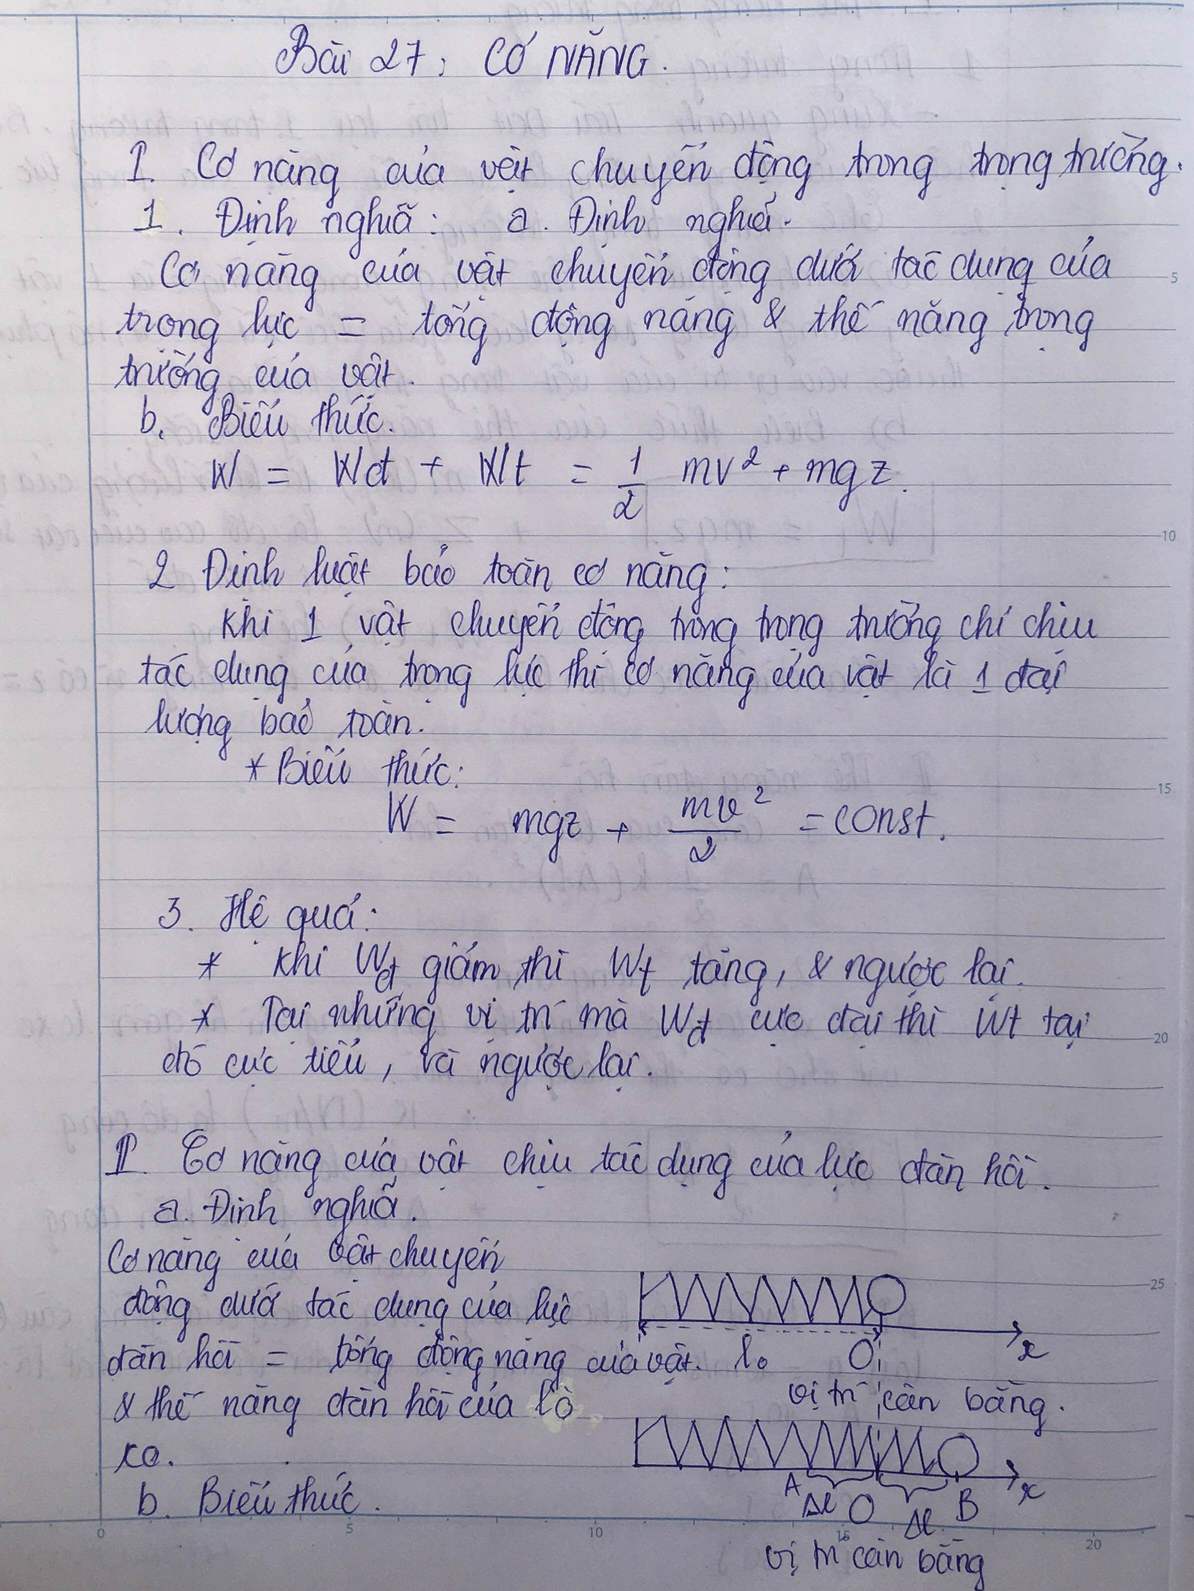 Bài 27: CƠ NĂNG.
I. Cơ năng của vật chuyển động trong trọng trường.
1. Định nghĩa: a. Định nghĩa.
Cơ năng của vật chuyển động dưới tác dụng của
trọng lực = tổng động năng & thế năng trọng
trường của vật.
b. Biểu thức.
W = Wđ + Wt = 1/2 mv² + mgz.
2 Định luật bảo toàn cơ năng:
Khi 1 vật chuyển động trong trọng trường chỉ chịu
tác dụng của trọng lực thì cơ năng của vật là 1 đại
lượng bảo toàn.
* Biểu thức:
W = mgz + mv²/2 = const.
3. Hệ quả:
* Khi Wđ giảm thì Wt tăng, & ngược lại.
* Tại những vị trí mà Wđ cực đại thì Wt tại
đó cực tiểu, và ngược lại.
II. Cơ năng của vật chịu tác dụng của lực đàn hồi.
a. Định nghĩa.
Cơ năng của vật chuyển
động dưới tác dụng của lực
đàn hồi = tổng động năng của vật.
& thế năng đàn hồi của lò
xo.
b. Biểu thức.
x
l₀ O
vị trí cân bằng.
x
A Δl O Δl B
vị trí cân bằng
5
10
15
20
25
0 5 10 15 20